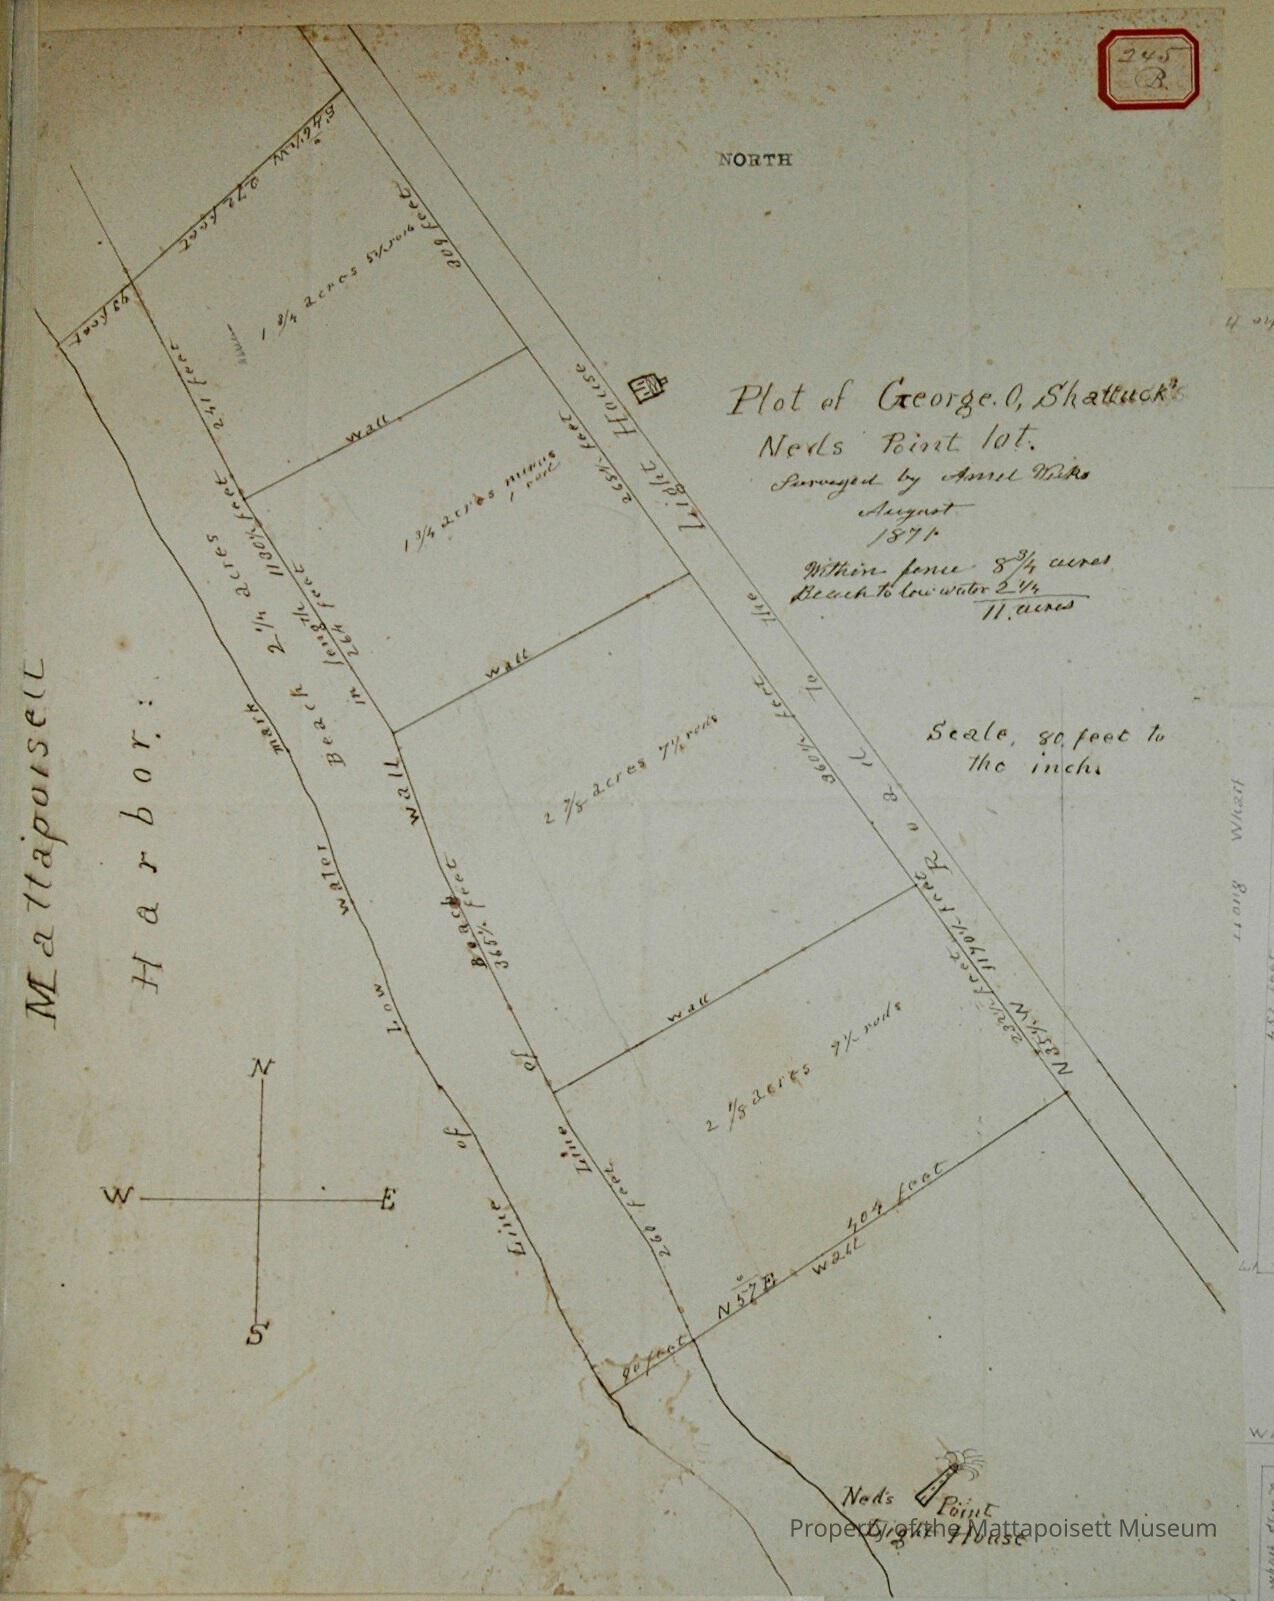 245
B.
NORTH
S 46½ W
272 feet
93 feet
309 feet
1 3/4 acres 5½ rods
241 feet
wall
Plot of George. O, Shattuck's
Neds Point lot.
Surveyed by Ansel Weeks
August
1871.
Within fence 8 3/4 acres
Beach to low water 2 1/4
11. acres
Scale, 80 feet to
the inch.
Road To the Light House
265½ feet
1 3/4 acres minus
1 rod
wall
264 feet
Beach 2 1/4 acres
in length 1130½ feet
360½ feet
2 7/8 acres 7½ rods
365½ feet
wall
Line of Beach Wall
Line of Low water mark
Mattapoisett
Harbor.
1190½ feet
N 35½ W
2 1/8 acres 9½ rods
260 feet
404 feet
wall
N 57° E
90 feet
N
W E
S
Ned's Point
Light House
Property of the Mattapoisett Museum
Wharf